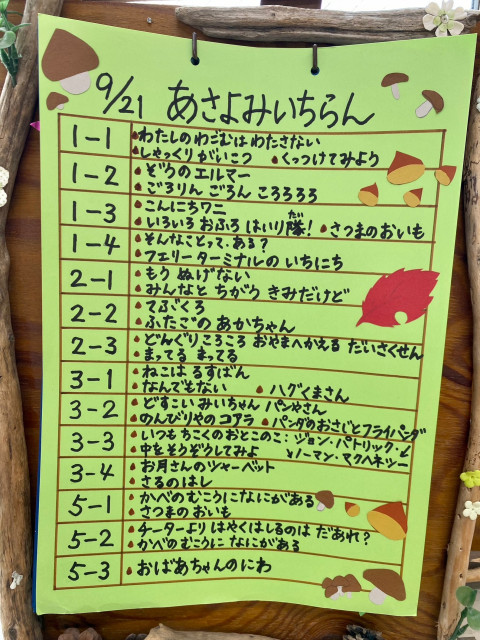 9/21 あさよみいちらん
1-1 わたしのわごむはわたさない
しゃっくりがいこつ くっつけてみよう
1-2 ぞうのエルマー
ごろりん ごろん ころろろろ
1-3 こんにちワニ
いろいろ おふろ はいり隊! さつまのおいも
だ
1-4 そんなことって、ある?
フェリーターミナルの いちにち
2-1 もう ぬげない
みんなと ちがう きみだけど
2-2 てぶくろ
ふたごの あかちゃん
2-3 どんぐりころころ おやまへかえる だいさくせん
まってる まってる
3-1 ねこは るすばん
なんでもない ハグくまさん
3-2 どすこい みいちゃん パンやさん
のんびりやの コアラ パンダのおさじとフライパンダ
3-3 いつも ちこくのおとこのこ:ジョン・パトリック・
ノーマン・マクヘネシー
中をそうぞうしてみよ
3-4 お月さんのシャーベット
さるのはし
5-1 かべのむこうになにがある
さつまの おいも
5-2 チーターより はやくはしるのは だあれ?
かべの むこうに なにがある
5-3 おばあちゃんのにわ